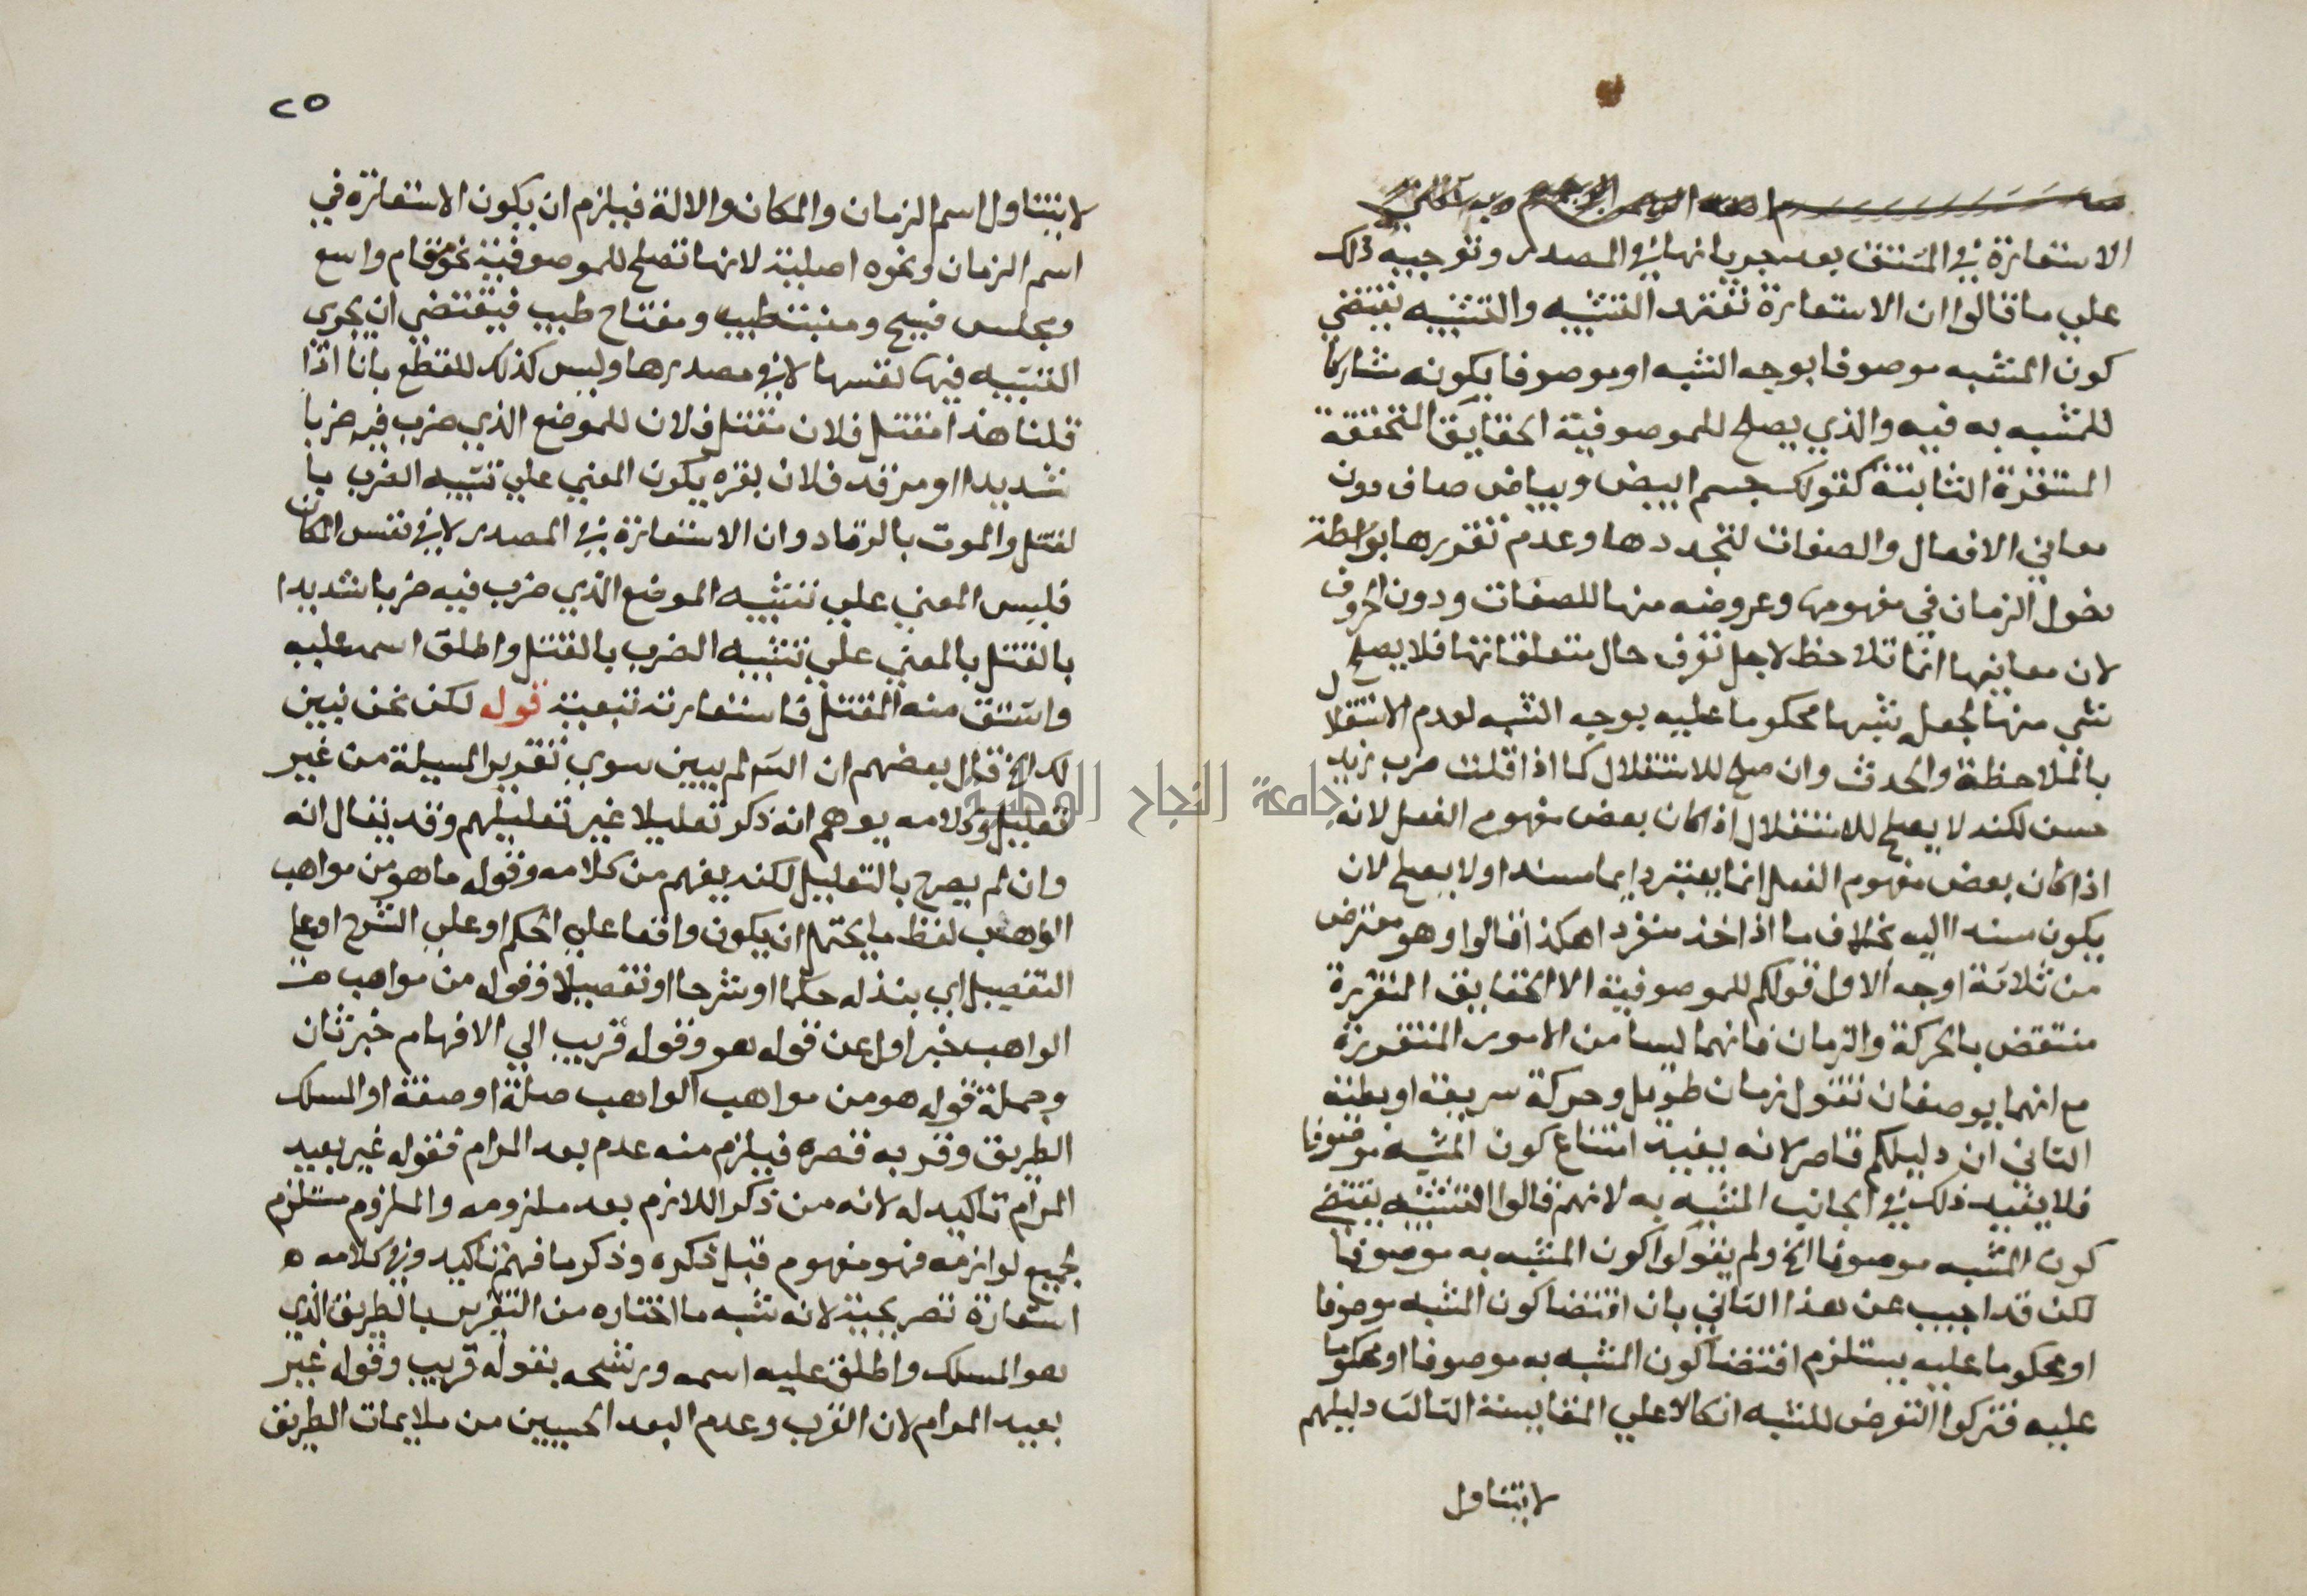 الاستعارة في المشتق بعد جريانها في المصدر وتوجيه ذلك
علي ما قالوا ان الاستعارة تعتمد التشبيه والتشبيه يقتضي
كون المشبه موصوفا بوجه الشبه او موصوفا بكونه مشاركا
للمشبه به فيه والذي يصلح للموصوفية الحقايق المتحققة
المتقررة الثابتة كقولك جسم ابيض وبياض صاف دون
معاني الافعال والصفات لتجددها وعدم تقررها بواسطة
دخول الزمان في مفهومها وعروضه منها للصفات ودون الحروف
لان معانيها انما تلاحظ لاجل تعرف حال متعلقاتها فلا يصلح
شي منها لجعل شبها محكوما عليه بوجه الشبه لعدم الاستقلال
بالملاحظة والحدث وان صلح للاستقلال كما اذا قلت ضرب زيد
حسن لكنه لا يصلح للاستقلال اذا كان بعض مفهوم الفعل لانه
اذا كان بعض مفهوم الفعل انما يعتبر دايما مسندا ولا يصلح لان
يكون مسندا اليه بخلاف ما اذا اخذ منفردا هكذا قالوا وهو معترض
من ثلاثة اوجه الاول قولكم للموصوفية الا الحقايق المتقررة
منتقض بالحركة والزمان فانهما ليسا من الامور المتقررة
مع انهما يوصفان تقول زمان طويل وحركة سريعة او بطئة
الثاني ان دليلكم قاصر لانه يفيد امتناع كون المشبه موصوفا
فلا يفيد ذلك في الجانب المشبه به لانهم قالوا التشبيه يقتضي
كون المشبه موصوفا الخ ولم يقولوا كون المشبه به موصوفا
لكن قد اجيب عن هذا الثاني بان اقتضا كون المشبه موصوفا
او محكوما عليه يستلزم اقتضا كون المشبه به موصوفا او محكوما
عليه فتركوا التعرض للمشبه اتكالا علي المقايسة الثالث دليلهم
لا يتناول
٢٥
لا يتناول اسم الزمان والمكان والالة فيلزم ان يكون الاستعارة في
اسم الزمان ونحوه اصلية لانها تصلح للموصوفية نحو مقام واسع
ومجلس فسيح ومنبت طيب ومفتاح طيب فيقتضي ان يجري
التشبيه فيها نفسها لا في مصدرها وليس كذلك للقطع بانا اذا
قلنا هذا مقتل فلان مقتل فلان للموضع الذي ضرب فيه ضربا
شديدا او مرقد فلان بقره يكون المعني علي تشبيه الضرب با
لقتل والموت بالرقاد وان الاستعارة في المصدر لا في نفس المكان
فليس المعني علي تشبيه الموضع الذي ضرب فيه ضربا شديدا
بالقتل بالمعني علي تشبيه الضرب بالقتل واطلق اسمه عليه
واشتق منه المقتل فاستعارته تبعية قوله لكن نحن نبين
لك الخ قال بعضهم ان الش لم يبين سوي تقرير المسيلة من غير
تعليل وكلامه يوهم انه ذكر تعليلا غير تعليلهم وقد يقال انه
وان لم يصرح بالتعليل لكنه يفهم من كلامه وقوله ما هو من مواهب
الواهب لفظ ما يحتمل ان يكون واقعا علي الحكم او علي الشرح او علي
التفصيل اي بنذله حكما او شرحا او تفصيلا وقوله من مواهب
الواهب خبر اول عن قوله هو وقوله قريب الي الافهام خبر ثان
وجملة قوله هو من مواهب الواهب صلة او صفة او المسلك
الطريق وقربه قصره فيلزم منه عدم بعد المرام فقوله غير بعيد
المرام تاكيد له لانه من ذكر اللازم بعد ملزومه والملزوم مستلزم
لجميع لوازمه فهو مفهوم قبل ذكره وذكر ما فهم تاكيد وفي كلامه ه
استعارة تصريحية لانه شبه ما اختاره من التقرير بالطريق الذي
هو المسلك واطلق عليه اسمه ورشحه بقوله قريب وقوله غير
بعيد المرام لان القرب وعدم البعد الحسيين من ملايمات الطريق
جامعة النجاح الوطنية